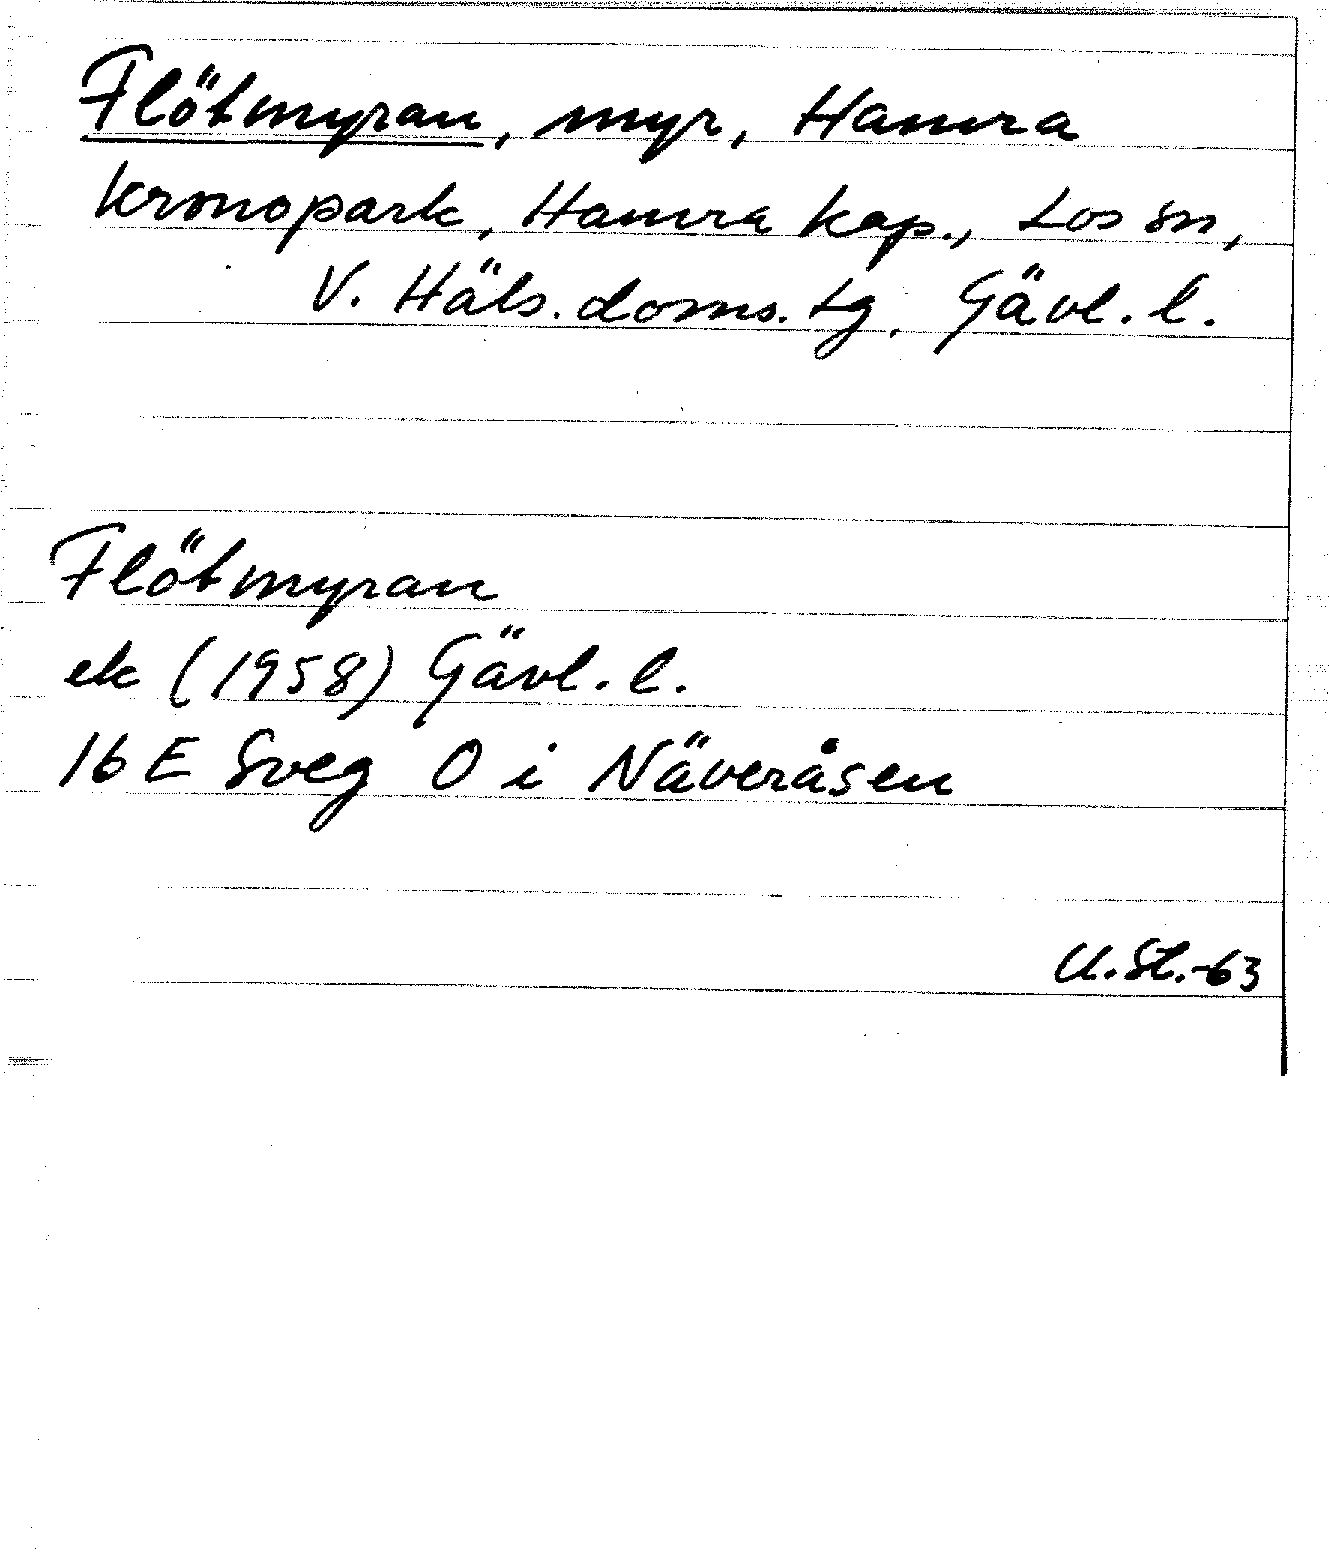 Flötmyran, myr, Hamra
kronopark, Hamra kap., Los sn,
V. Häls. doms. tg. Gävl. l.
Flötmyran
ek (1958) Gävl. l.
16 E Sveg O i Näveråsen
U. St. -63